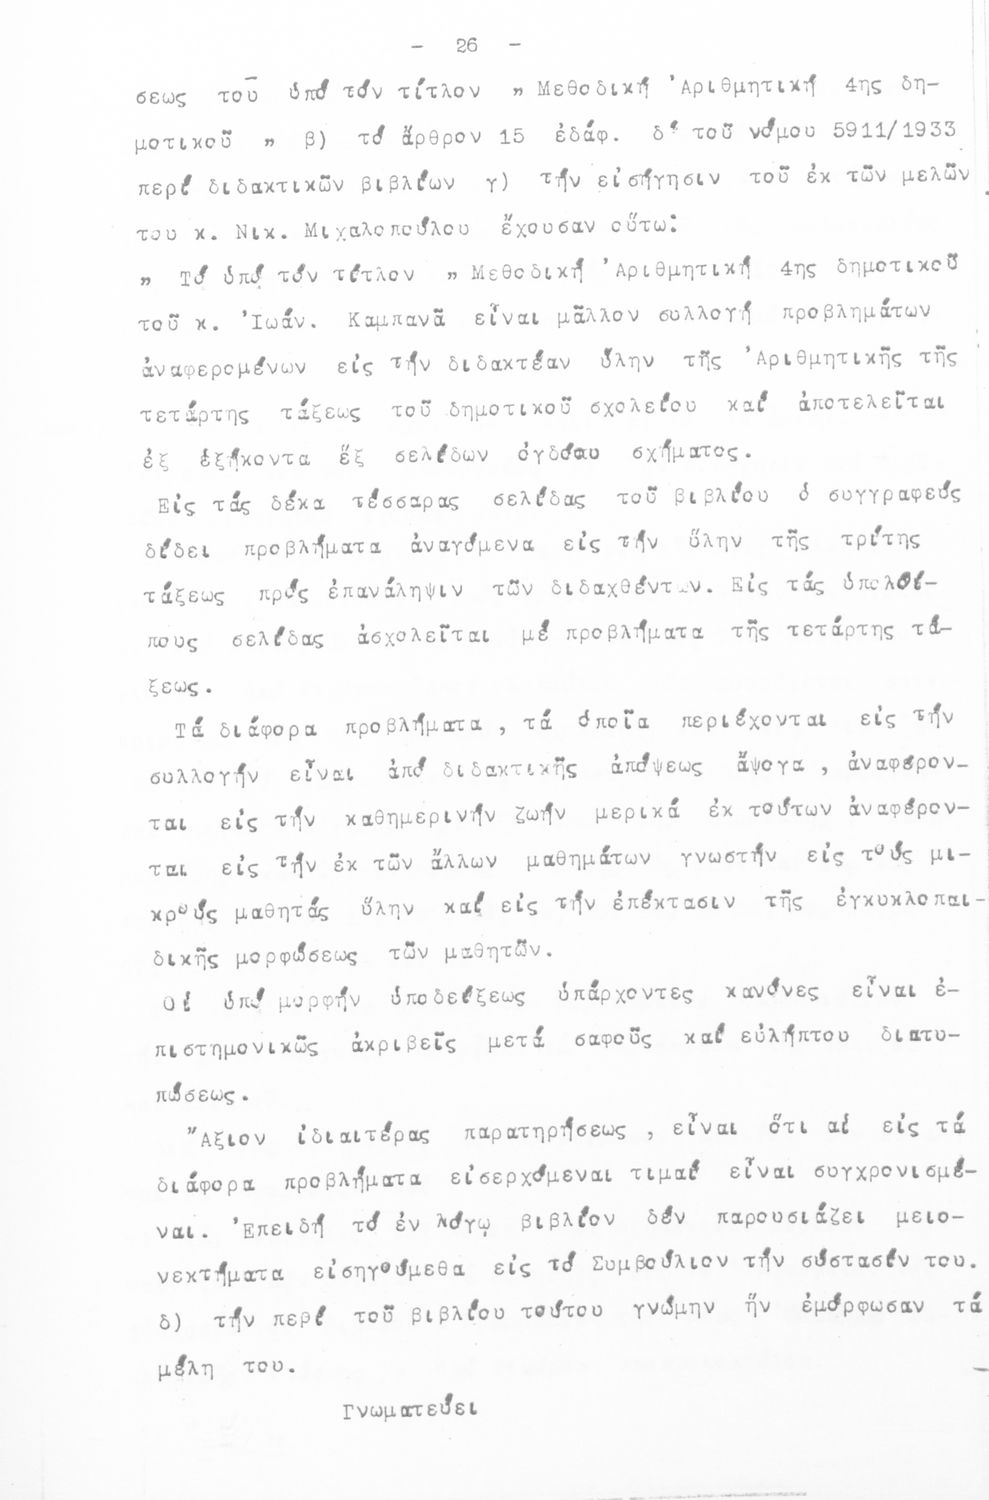 - 26 -
σεως τοῦ ὑπό τόν τίτλον " Μεθοδική Ἀριθμητική 4ης δη-
μοτικοῦ " β) τό ἄρθρον 15 ἐδάφ. δ' τοῦ νόμου 5911/1933
περί διδακτικῶν βιβλίων γ) τήν εἰσήγησιν τοῦ ἐκ τῶν μελῶν
του κ. Νικ. Μιχαλοπούλου ἔχουσαν οὕτω:
" Τό ὑπό τόν τίτλον " Μεθοδική Ἀριθμητική 4ης δημοτικοῦ
τοῦ κ. Ἰωάν. Καμπανᾶ εἶναι μᾶλλον συλλογή προβλημάτων
ἀναφερομένων εἰς τήν διδακτέαν ὕλην τῆς Ἀριθμητικῆς τῆς
τετάρτης τάξεως τοῦ δημοτικοῦ σχολείου καί ἀποτελεῖται
ἐξ ἑξήκοντα ἕξ σελίδων ὀγδόου σχήματος.
Εἰς τάς δέκα τέσσαρας σελίδας τοῦ βιβλίου ὁ συγγραφεύς
δίδει προβλήματα ἀναγόμενα εἰς τήν ὕλην τῆς τρίτης
τάξεως πρός ἐπανάληψιν τῶν διδαχθέντων. Εἰς τάς ὑπολοί-
πους σελίδας ἀσχολεῖται μέ προβλήματα τῆς τετάρτης τά-
ξεως.
Τά διάφορα προβλήματα , τά ὁποῖα περιέχονται εἰς τήν
συλλογήν εἶναι ἀπό διδακτικῆς ἀπόψεως ἄψογα , ἀναφέρον-
ται εἰς τήν καθημερινήν ζωήν μερικά ἐκ τούτων ἀναφέρον-
ται εἰς τήν ἐκ τῶν ἄλλων μαθημάτων γνωστήν εἰς τούς μι-
κρούς μαθητάς ὕλην καί εἰς τήν ἐπέκτασιν τῆς ἐγκυκλοπαι-
δικῆς μορφώσεως τῶν μαθητῶν.
Οἱ ὑπό μορφήν ὑποδείξεως ὑπάρχοντες κανόνες εἶναι ἐ-
πιστημονικῶς ἀκριβεῖς μετά σαφοῦς καί εὐλήπτου διατυ-
πώσεως.
Ἄξιον ἰδιαιτέρας παρατηρήσεως , εἶναι ὅτι αἱ εἰς τά
διάφορα προβλήματα εἰσερχόμεναι τιμαί εἶναι συγχρονισμέ-
ναι. Ἐπειδή τό ἐν λόγῳ βιβλίον δέν παρουσιάζει μειο-
νεκτήματα εἰσηγούμεθα εἰς τό Συμβούλιον τήν σύστασίν του.
δ) τήν περί τοῦ βιβλίου τούτου γνώμην ἥν ἐμόρφωσαν τά
μέλη του.
Γνωματεύει